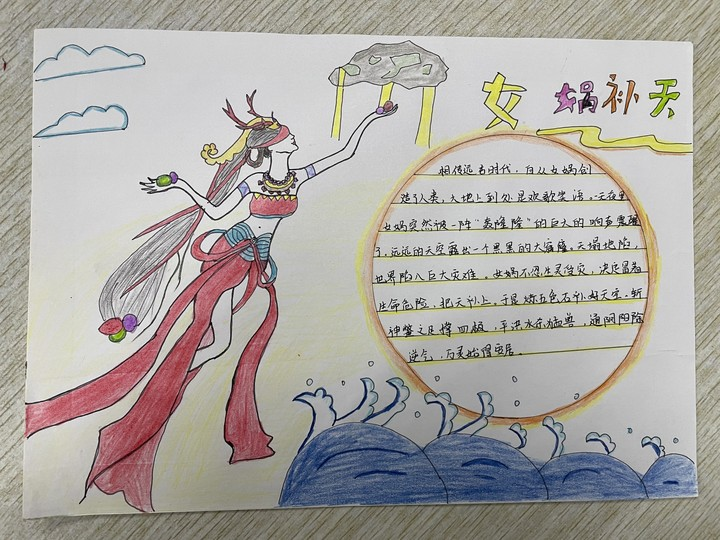 女娲补天
相传远古时代，自从女娲创
造了人类，大地上到处是欢歌笑语，一天夜里
女娲突然被一阵“轰隆隆”的巨大的响声震醒
了，远远的天空露出一个黑黑的大窟窿。天塌地陷，
世界陷入巨大灾难。女娲不忍生灵受灾，决定冒着
生命危险，把天补上，于是炼五色石补好天空，斩
神鳖之足撑四极，平洪水杀猛兽，通阴阳除
逆气，万灵始得安居。